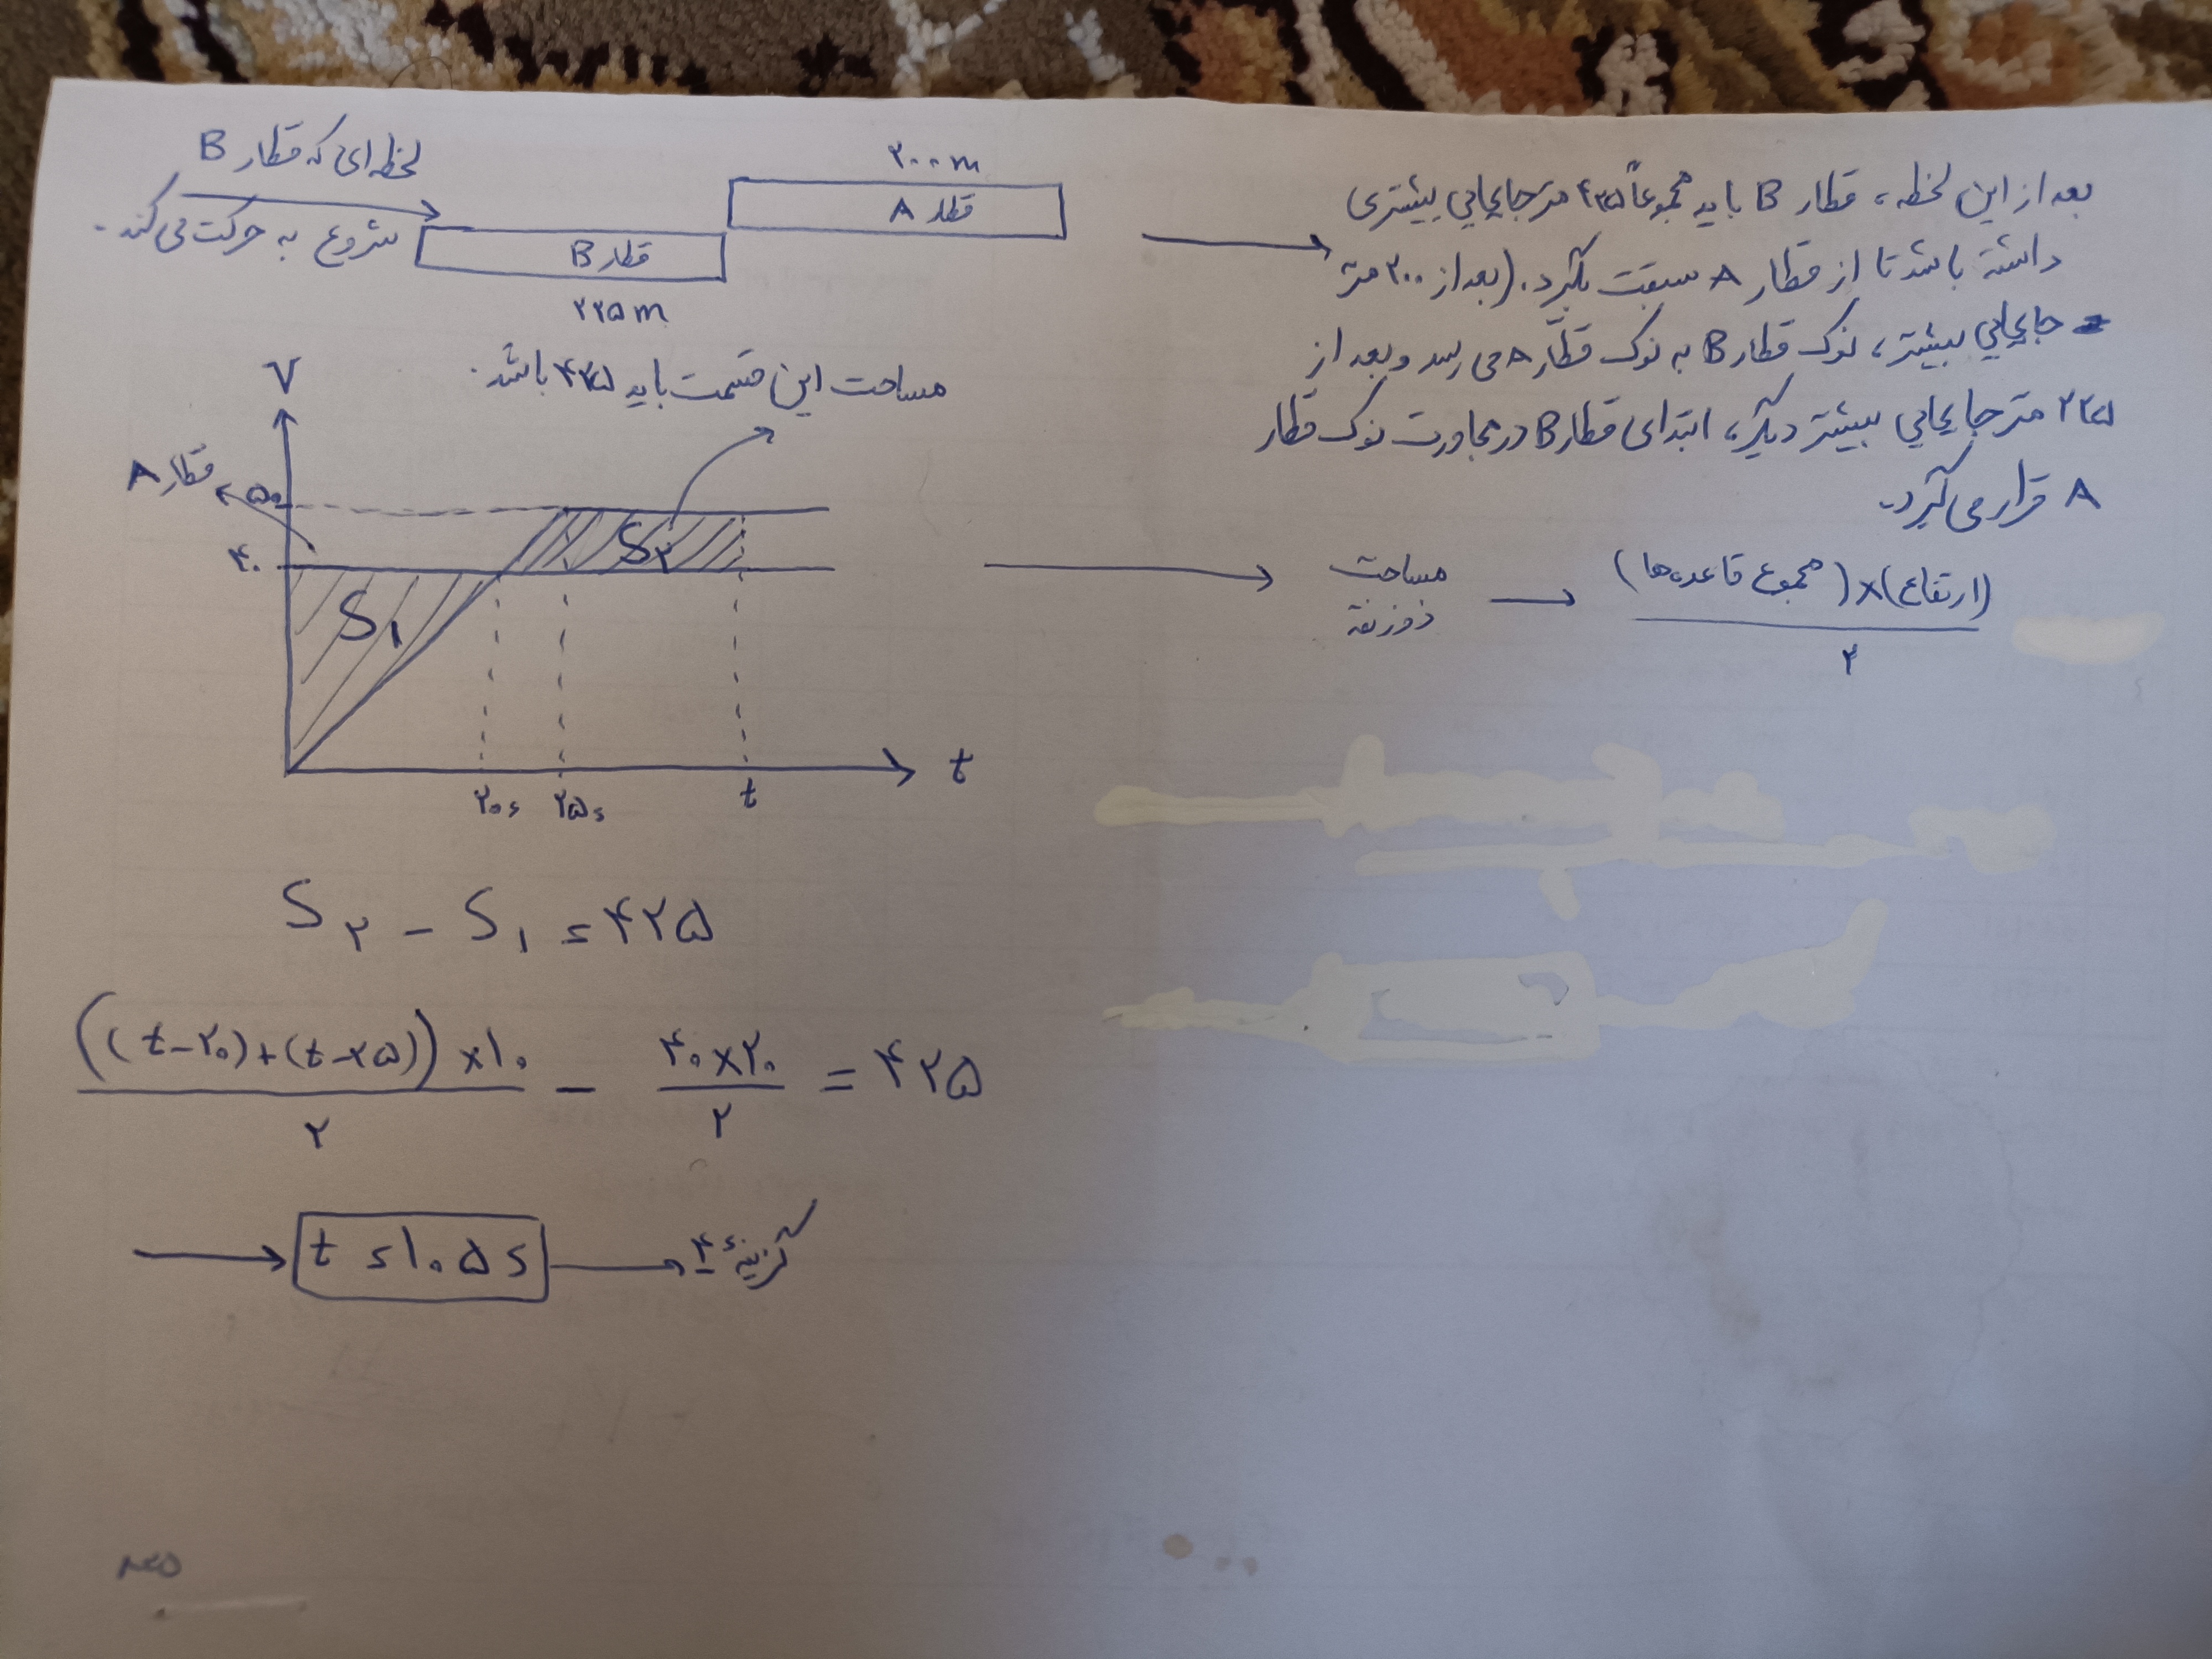 لحظه‌ای که قطار B
شروع به حرکت می‌کند.
۲۰۰m
قطار A
قطار B
۲۲۵m
بعد از این لحظه، قطار B باید مجموعاً ۴۲۵ متر جابجایی بیشتری
داشته باشد تا از قطار A سبقت بگیرد. (بعد از ۲۰۰ متر
جابجایی بیشتر، نوک قطار B به نوک قطار A می‌رسد و بعد از
۲۲۵ متر جابجایی بیشتر دیگر، ابتدای قطار B در مجاورت نوک قطار
A قرار می‌گیرد.
V
مساحت این قسمت باید ۴۲۵ باشد.
قطار A
۵۰
۴۰
S۱
S۲
۲۰s ۲۵s t
t
مساحت
ذوزنقه
(ارتفاع)×(مجموع قاعده‌ها)
۲
S۲ - S۱ = ۴۲۵
((t-۲۰)+(t-۲۵))×۱۰
۲
- ۴۰×۲۰
۲
= ۴۲۵
t = ۱۰۵s
گزینهٔ ۴